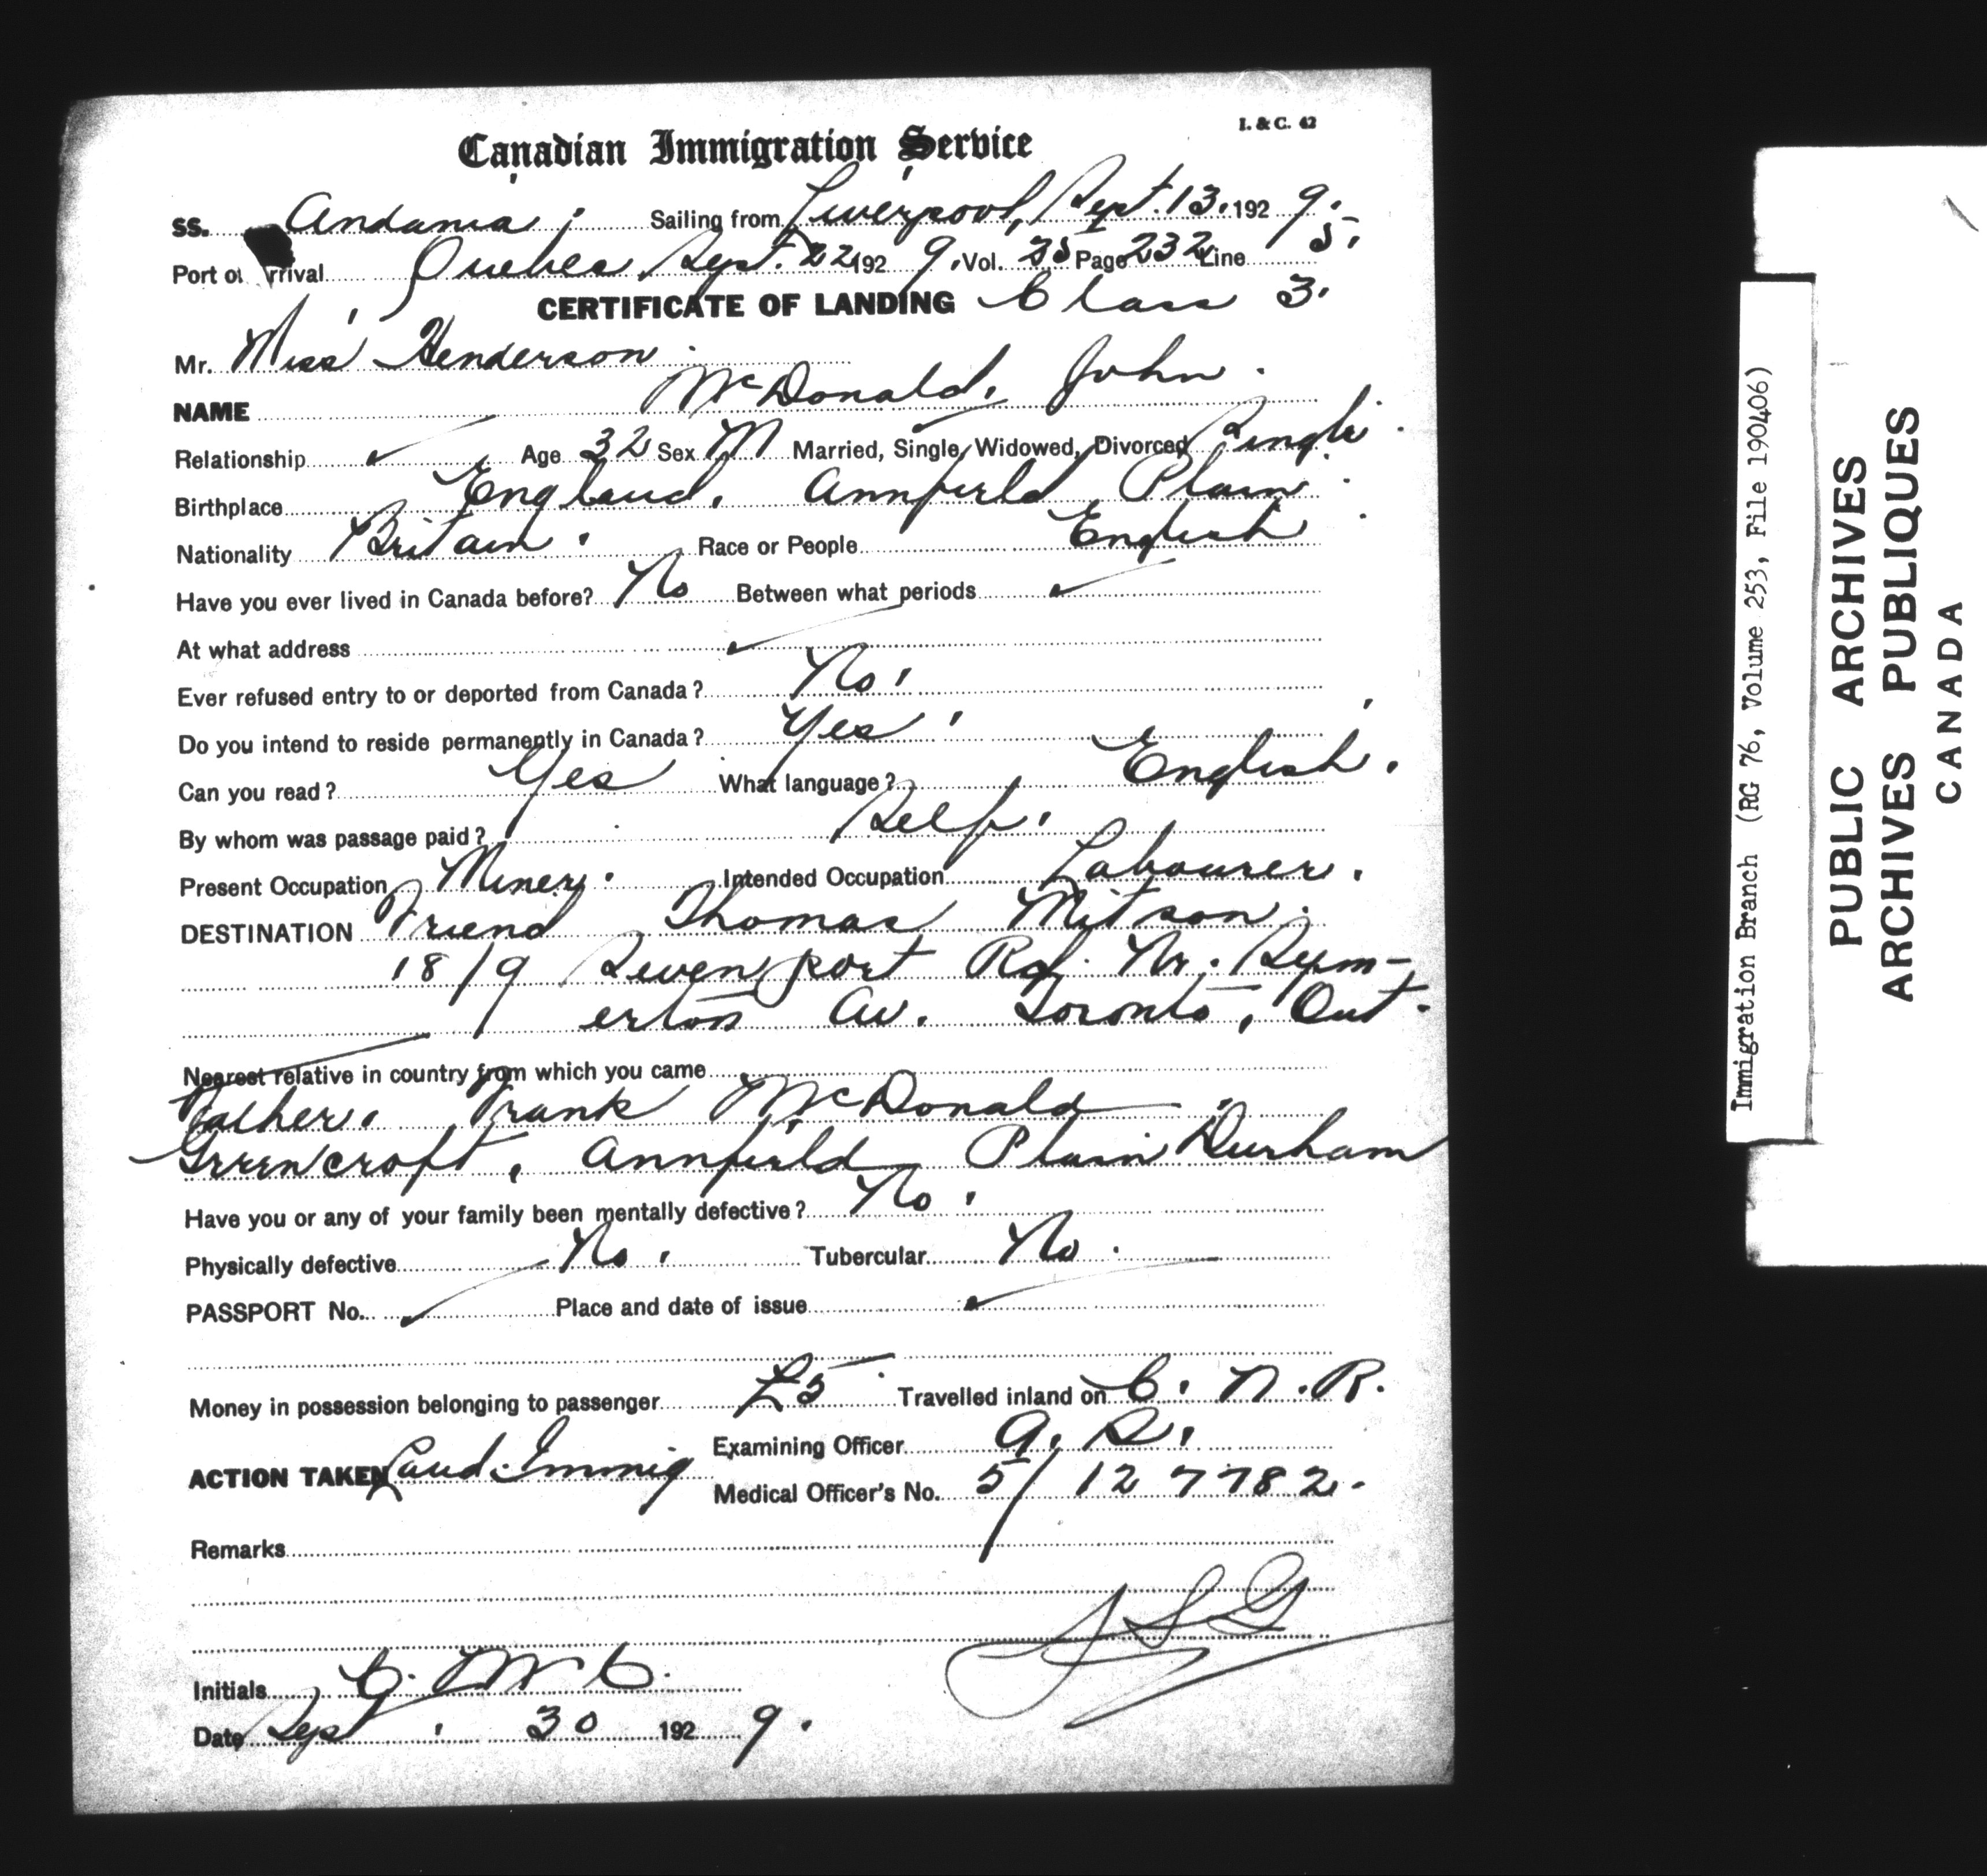 I. & C. 42
Canadian Immigration Service
SS. Andania. Sailing from Liverpool, Sept. 13, 192 9.
Port of Arrival Quebec Sept. 22 192 9. Vol. 25 Page 232 Line 5.
CERTIFICATE OF LANDING Class 3.
Mr. Miss Henderson.
NAME McDonald, John.
Relationship ✓ Age 32 Sex M Married, Single, Widowed, Divorced Single.
Birthplace England. Annfield Plain.
Nationality Britain. Race or People English.
Have you ever lived in Canada before? No Between what periods ✓
At what address ✓
Ever refused entry to or deported from Canada? No.
Do you intend to reside permanently in Canada? Yes.
Can you read? Yes What language? English.
By whom was passage paid? Self.
Present Occupation Miner. Intended Occupation Labourer.
DESTINATION Friend Thomas Mitson.
18/9 Devenport Rd. Nr. Sym-
erton Av. Toronto, Ont.
Nearest relative in country from which you came
Father. Frank McDonald.
Greencroft, Annfield Plain Durham
Have you or any of your family been mentally defective? No.
Physically defective No. Tubercular No.
PASSPORT No. ✓ Place and date of issue ✓
Money in possession belonging to passenger £5 Travelled inland on C. N. R.
Examining Officer
ACTION TAKEN Land. Immig
Medical Officer's No. 5/127782.
Remarks
Initials C. McC.
Date Sept. 30 192 9.
Immigration Branch (RG 76, Volume 253, File 190406)
PUBLIC ARCHIVES
ARCHIVES PUBLIQUES
CANADA